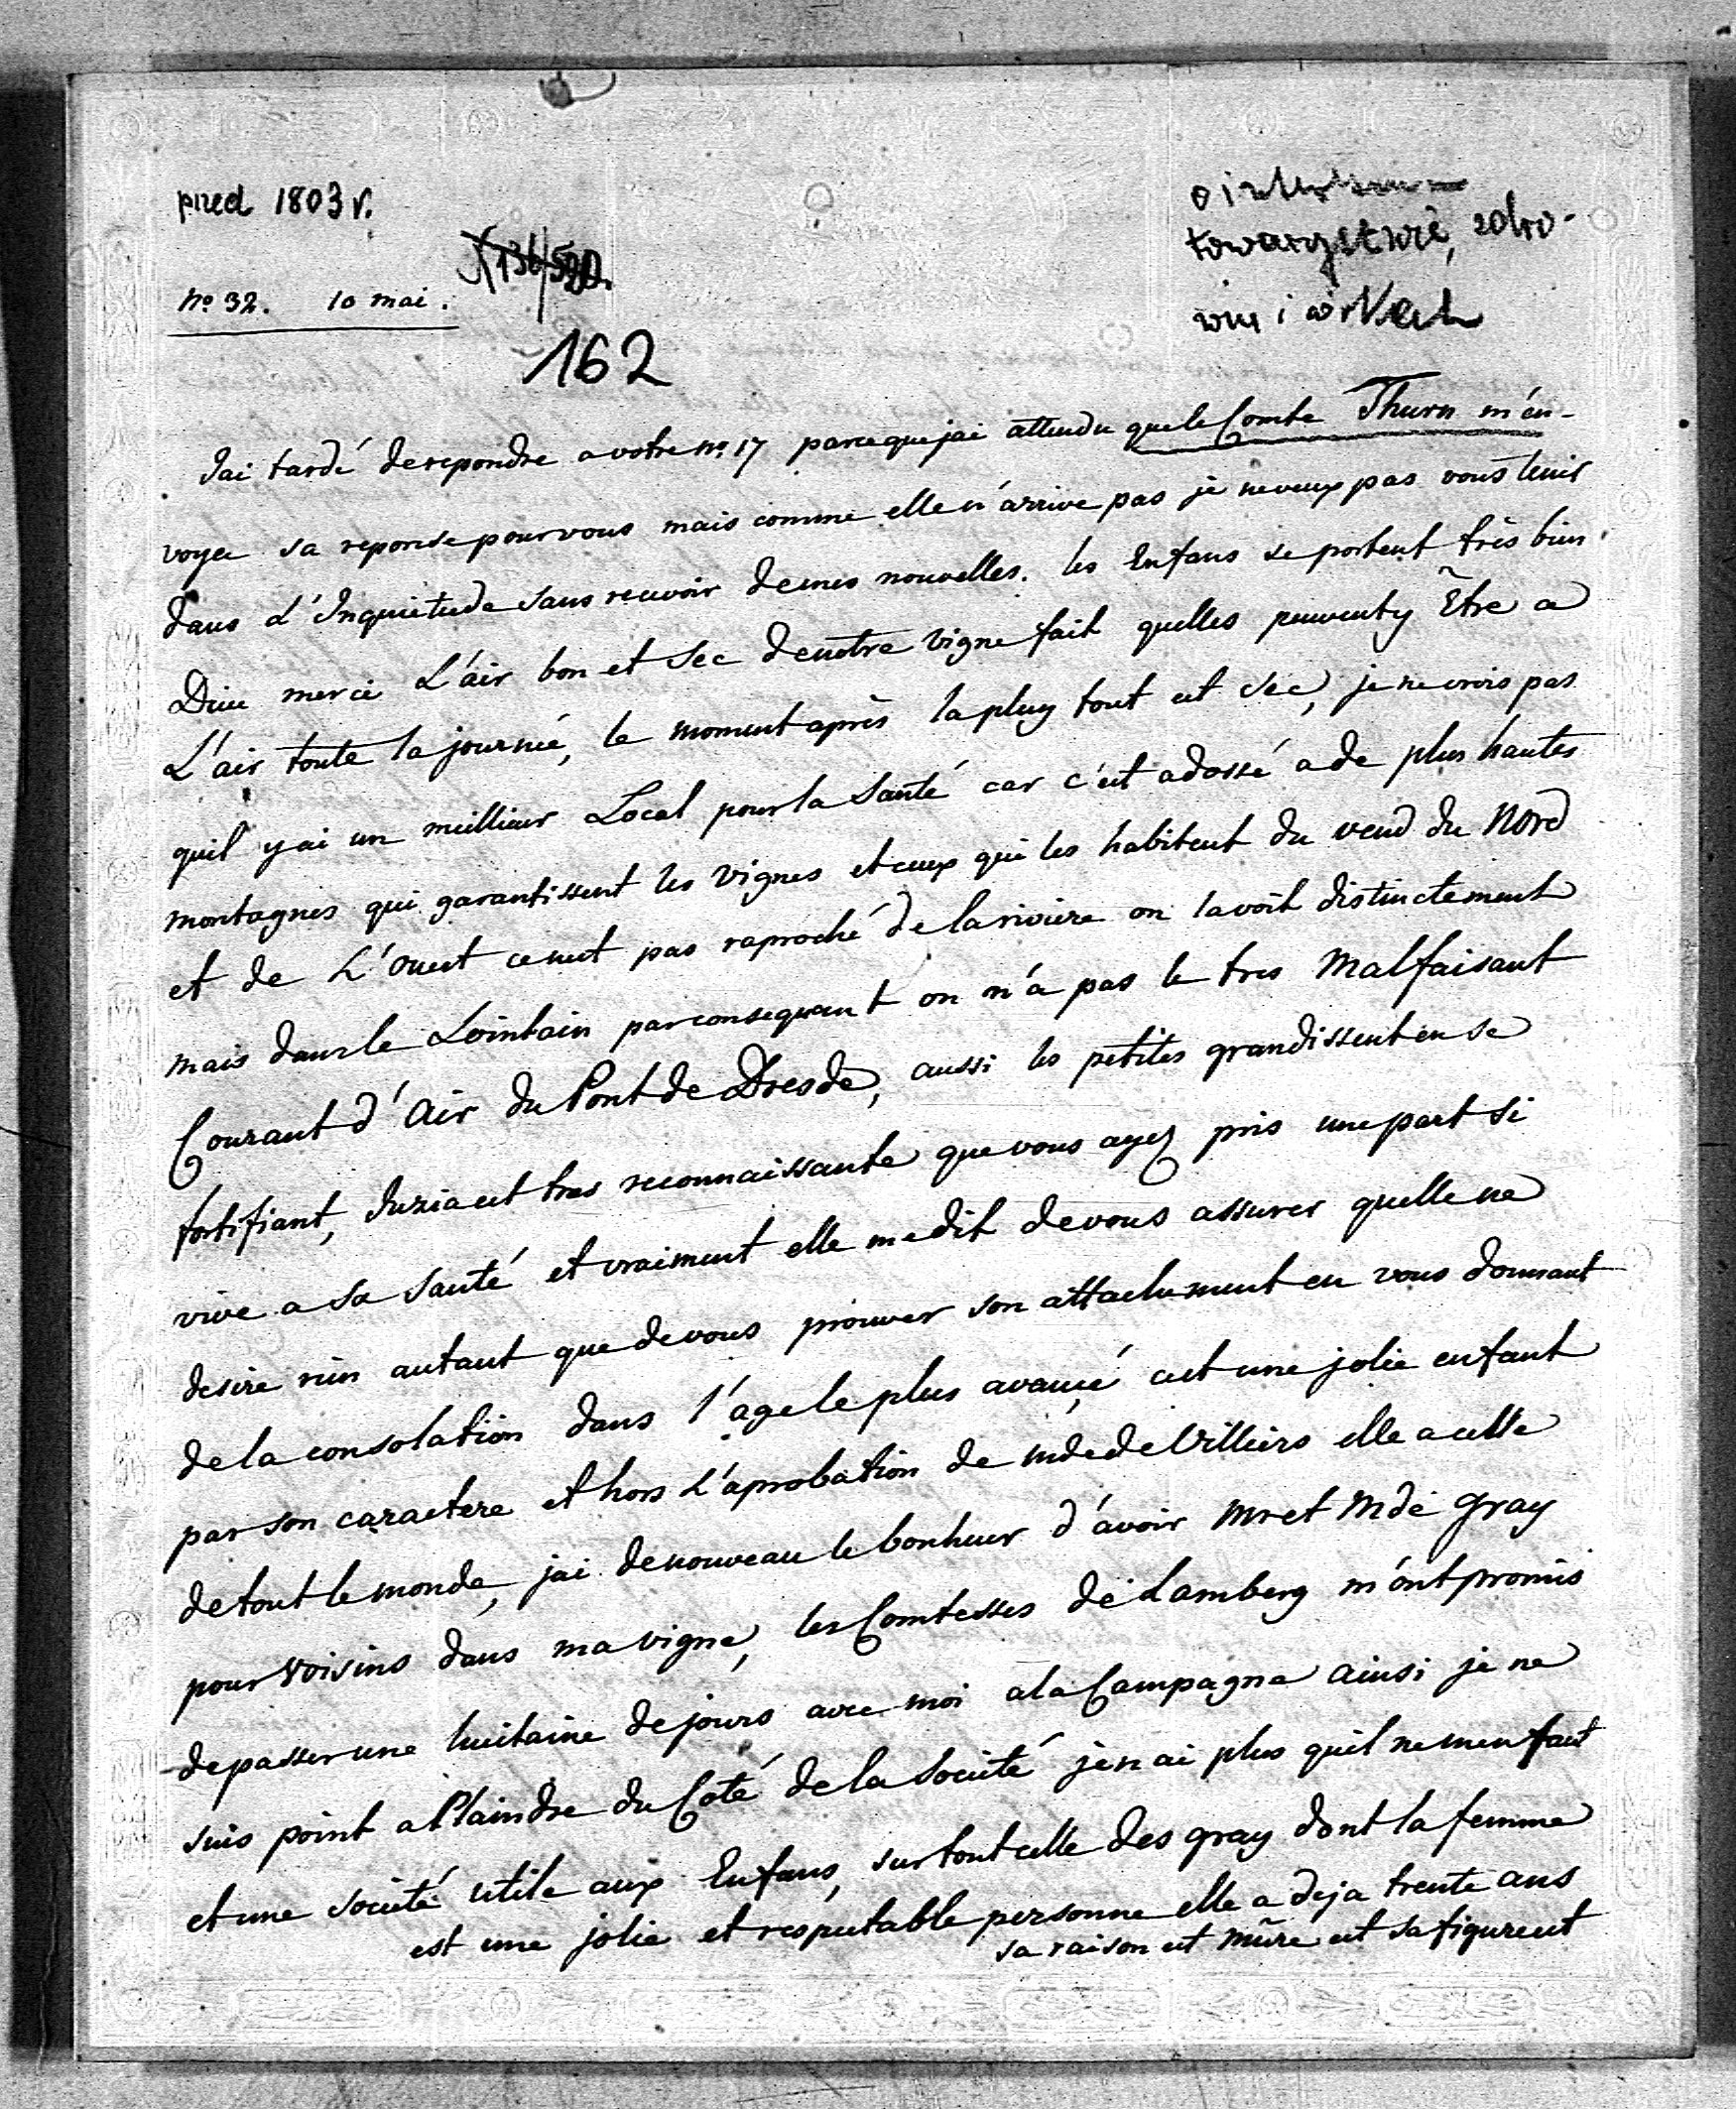 pred 1803 r.
towarzystwie, zdro-
wiu i
no. 32. 10 mai.
162
Jai tardé derepondre a votre no. 17 parceque jai attendu que le Comte Thurn m'en-
voye sa reponse pour vous mais comme elle n'arrive pas je neveux pas vous tenir
dans d'Inquietude sans recevoir de mes nouvelles. les Enfans se portent très bien
Dieu merci L'air bon et sec de notre vigne fait quelles peuventy Être a
L'air toute la journée, le moment après la pluy tout est sec, je ne crois pas
quil y ai un meillieur Local pour la Santé car c'est adossé a de plus hautes
montagnes qui garantissent les vignes et ceux qui les habitent du vend du Nord
et de L'Ouest ce nest pas raproché de la riviere on la voit distinctement
mais dans le Lointain par consequent on n'a pas le tres Malfaisant
Courant d'Air du Pont de Dresde, aussi les petites grandissent en se
fortifiant, Iuzia est tres reconnaissante que vous ayez pris une part si
vive a sa Santé et vraiment elle me dit de vous assurer quelle ne
desire rien autant que de vous prouver son attachement en vous donnant
de la consolation dans l'age le plus avancé cest une jolie enfant
par son caractere et hors L'aprobation de mde de Villiers elle a celle
de tout le monde, jai de nouveau le bonheur d'avoir Mr et Mde Gray
pour voisins dans ma vigne, les Comtesses de Lamberg m'ont promis
de passer une huitaine de jours avec moi a la Campagne ainsi je ne
suis point a Plaindre du Coté de la Société jen ai plus quil ne men faut
et une société utile aux Enfans, surtout celle des gray dont la femme
est une jolie et respectable personne elle a deja trente ans
sa raison est mûre et sa figure est